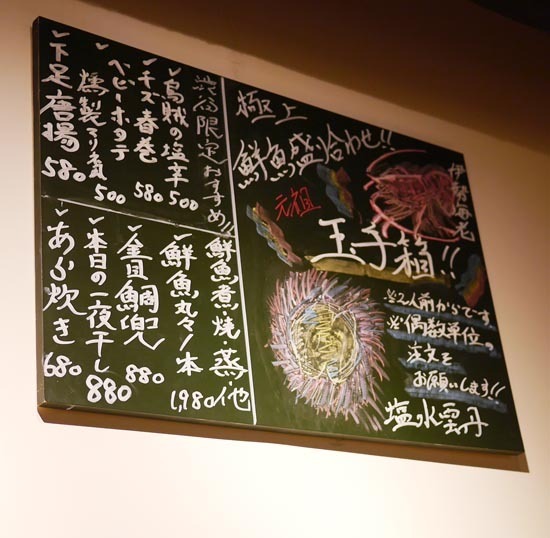 極上
鮮魚盛り合わせ!!
伊勢海老
元祖
玉手箱!!
※2人前からです
※偶数単位の
注文を
お願いします!!
塩水雲丹
渋谷限定おすすめ!!
烏賊の塩辛
500
チーズ春巻
580
ベビーホタテ
燻製マリネ
500
下足唐揚
580
鮮魚煮・焼・蒸・他
鮮魚丸々1本
1,980
金目鯛兜
880
本日の一夜干し
880
あら炊き
680